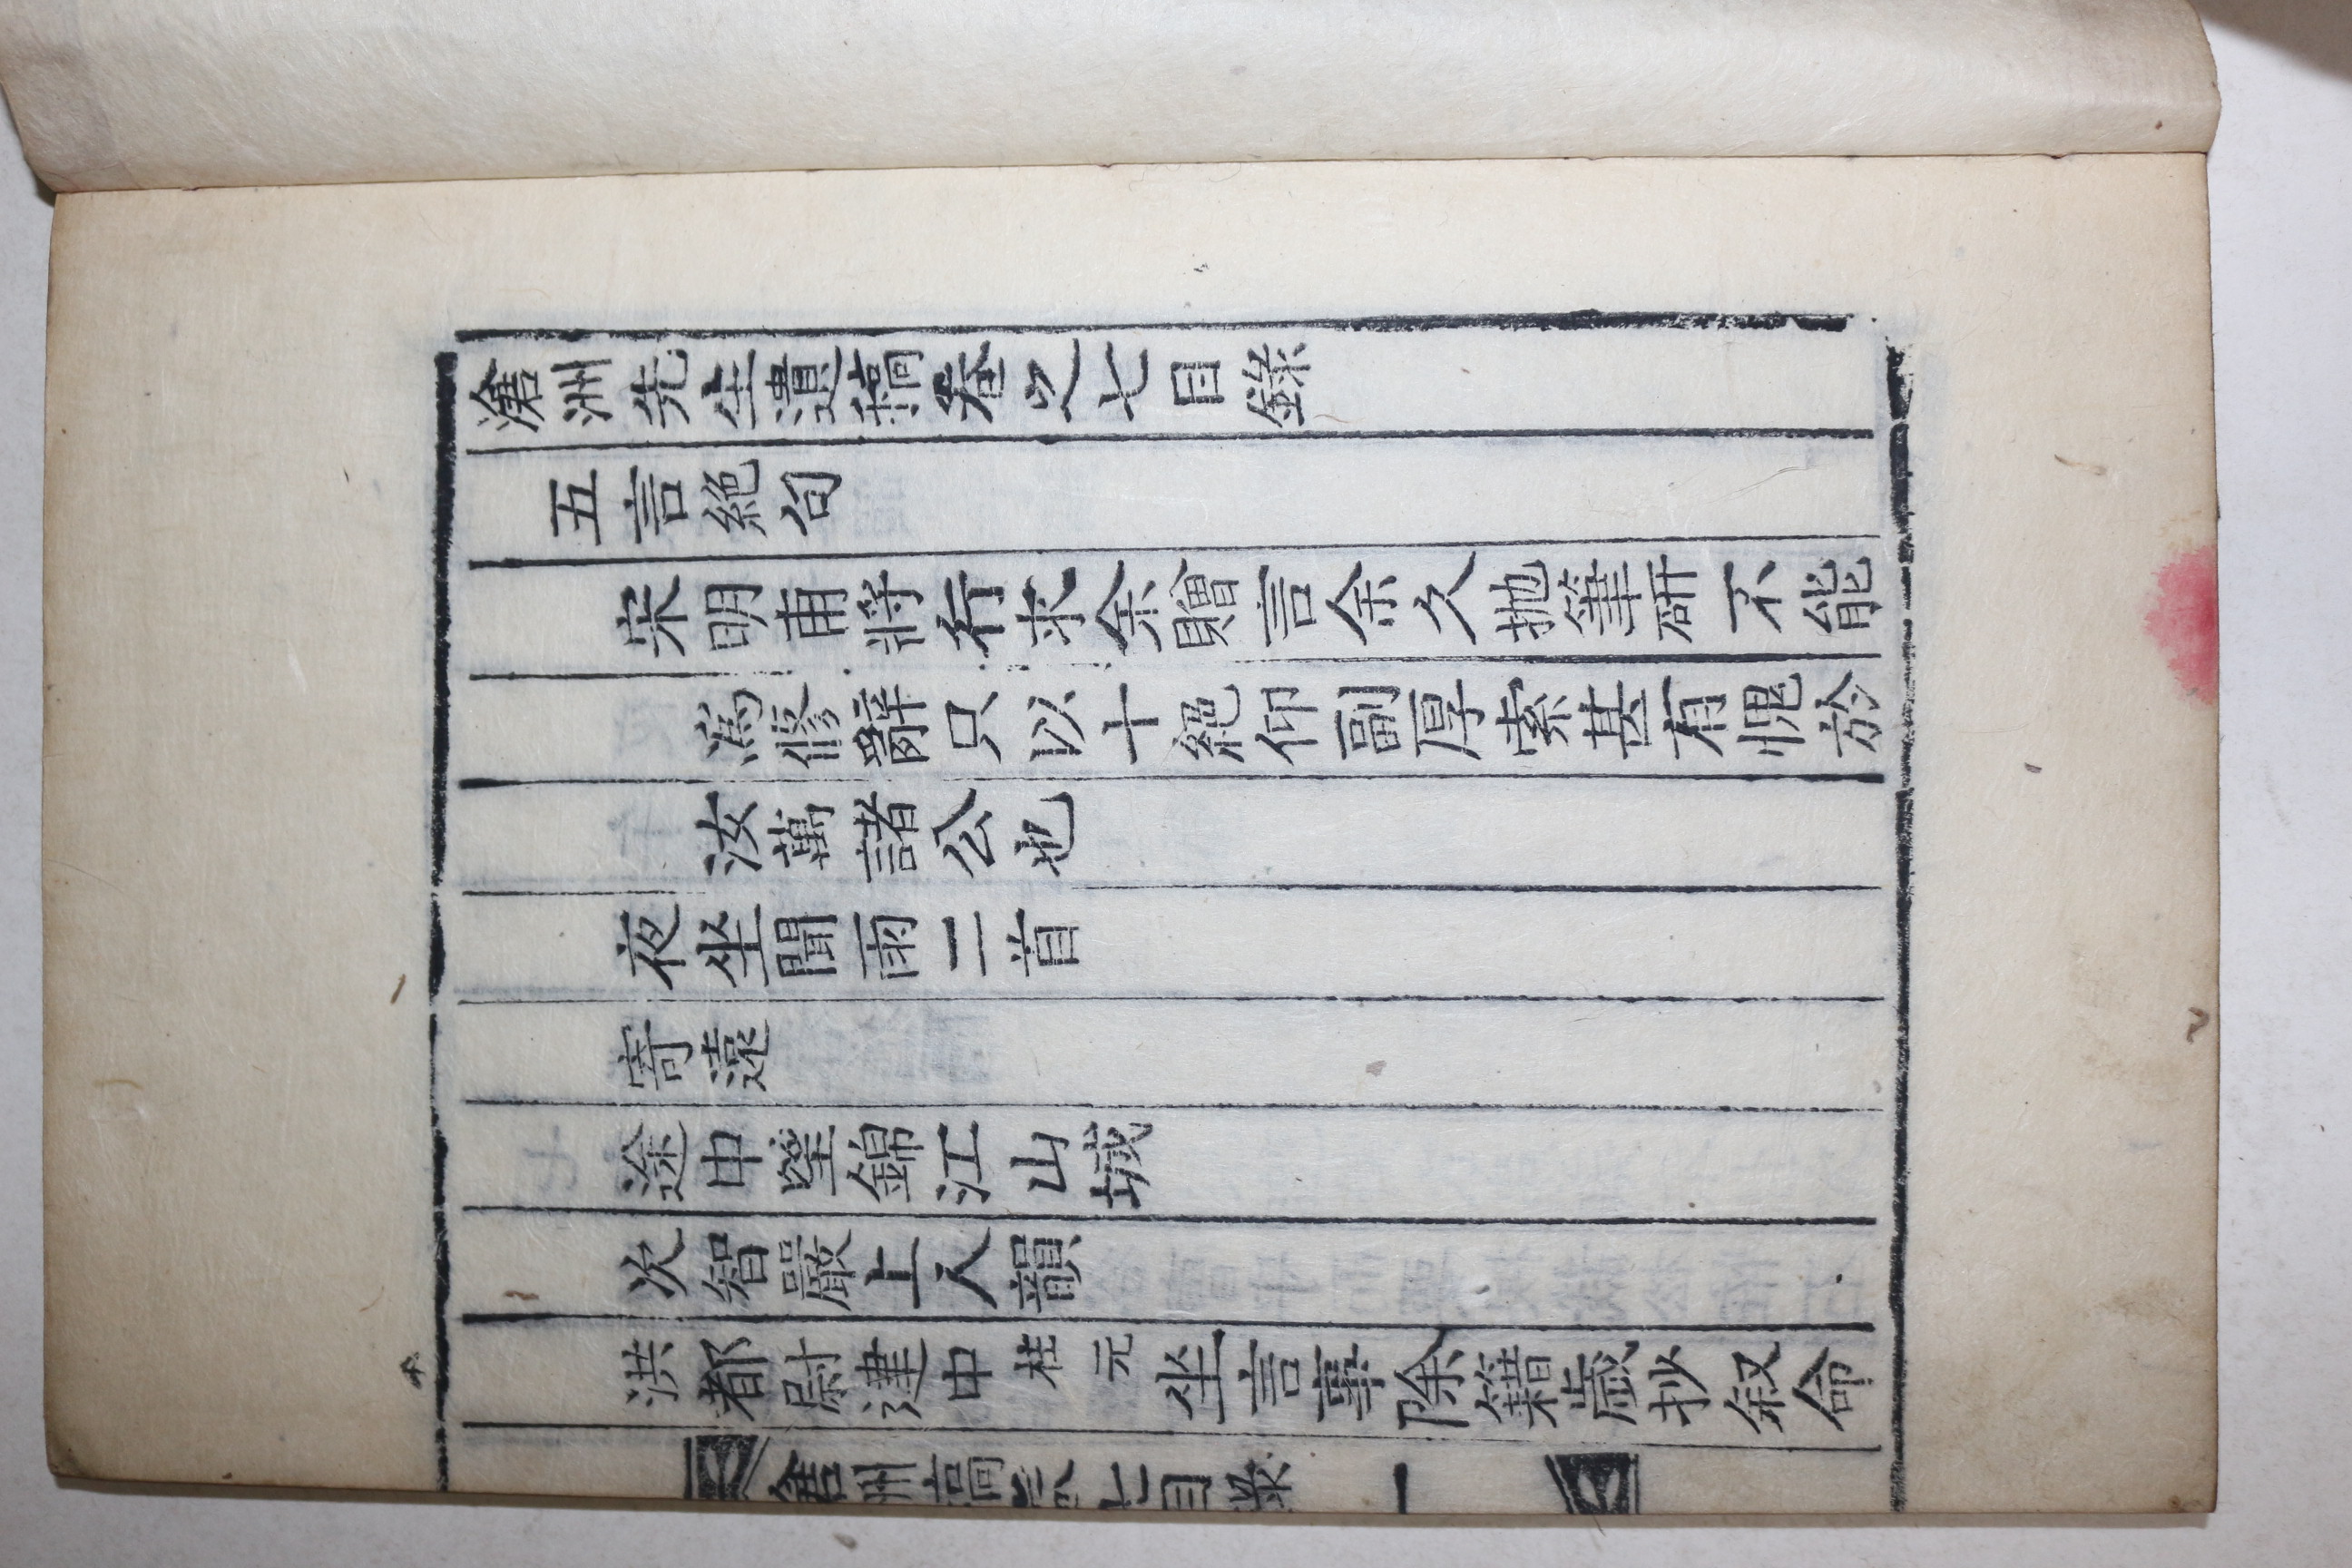 滄洲先生遺稿卷之七目錄
五言絶句
宋明甫將行求余贈言余久抛筆硏不能
爲修辭只以十絶仰副厚索甚有愧於
汝萬諸公也
夜坐聞雨二首
寄遠
途中望錦江山城
次智嚴上人韻
洪都尉建中柱元坐言事除籍歲抄叙命
滄洲稿卷七目录 一